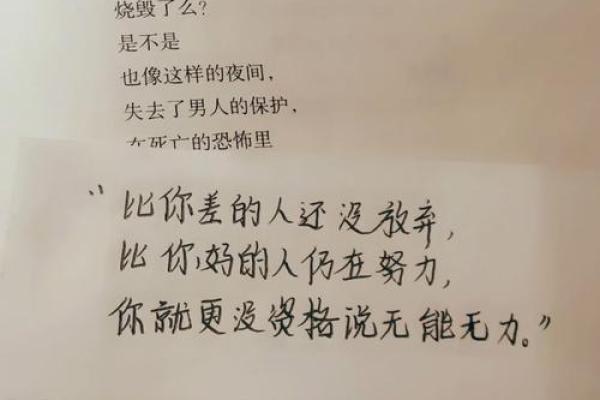 烧毁了么?
是不是
也像这样的夜间,
失去了男人的保护,
在死亡的恐怖里
“比你差的人还没放弃,
比你好的人仍在努力,
你就更没资格说无能无力。”